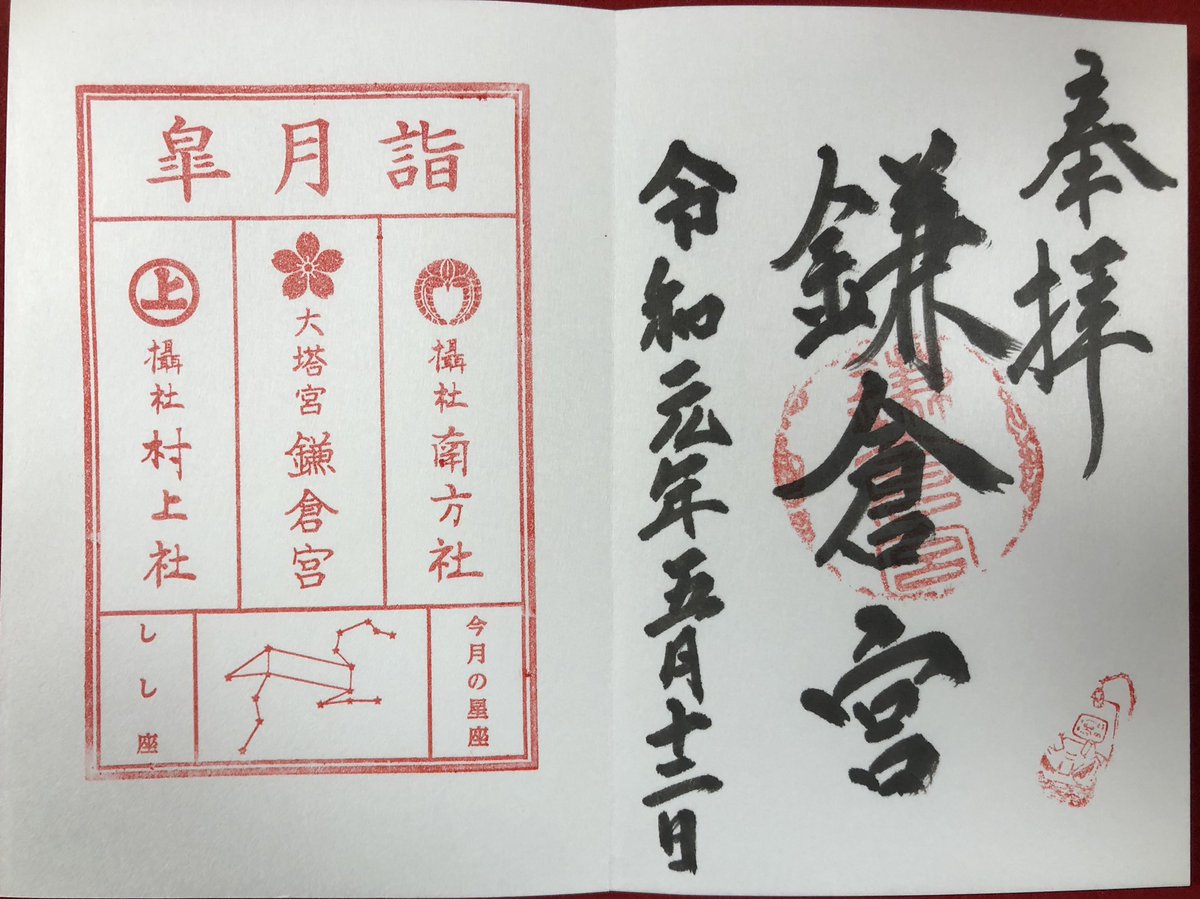 奉拝
鎌倉宮
令和元年五月十二日
皐月詣
攝社 南方社
大塔宮 鎌倉宮
上
攝社 村上社
今月の星座
しし座